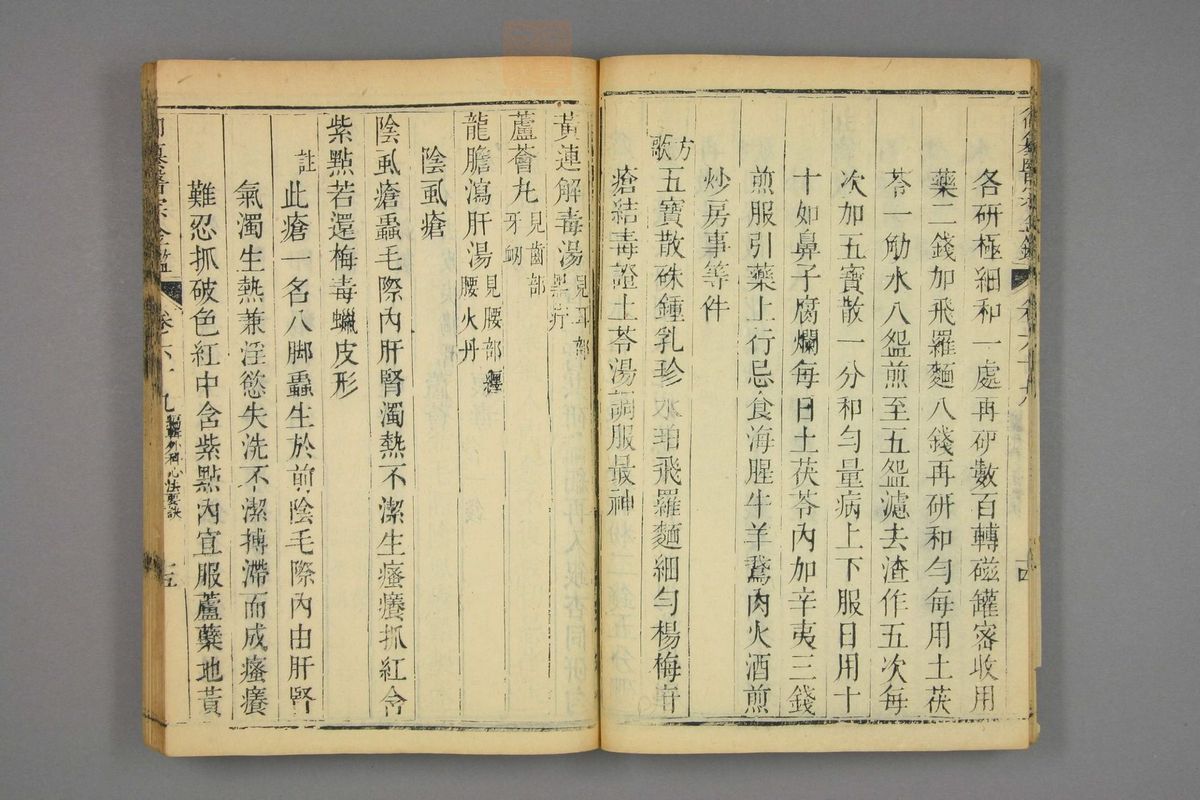 各研極細和一處再研數百轉磁罐密收用
藥二錢加飛羅麵八錢再研和勻每用土茯
苓一觔水八盌煎至五盌濾去渣作五次每
次加五寶散一分和勻量病上下服日用十
十如鼻子腐爛每日土茯苓內加辛夷三錢
煎服引藥上行忌食海腥牛羊鵞肉火酒煎
炒房事等件
方歌
五寶散硃鍾乳珍氷珀飛羅麵細勻楊梅疳
瘡結毒證土苓湯調服最神
黃連解毒湯見耳部黑疔
蘆薈丸見齒部牙衂
龍膽瀉肝湯見腰部纏腰火丹
陰虱瘡
陰虱瘡蟲毛際內肝腎濁熱不潔生瘙癢抓紅含
紫點若還梅毒蠟皮形
註
此瘡一名八脚蟲生於前陰毛際內由肝腎
氣濁生熱兼淫慾失洗不潔搏滯而成瘙癢
難忍抓破色紅中含紫點內宜服蘆蘗地黃
醫宗金鑑
卷六十九
編輯外科心法要訣
十五